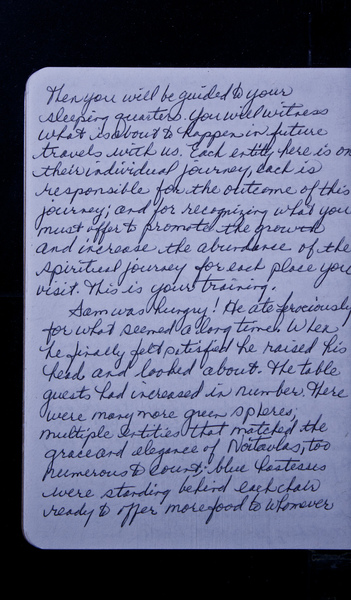 Then you will be guided to your
sleeping quarters. You will witness
what is about to happen in future
travels with us. Each entity here is on
their individual journey, each is
responsible for the outcome of this
journey; and for recognizing what you
must offer to promote the growth
and increase the abundance of the
spiritual journey for each place you
visit. This is your training.
Sam was hungry! He ate ferociously
for what seemed a long time. When
he finally felt satisfied he raised his
head and looked about. The table
guests had increased in number. There
were many more green spheres;
multiple entities that matched the
grace and elegance of Noitavlas, too
numerous to count. blue hostesus
were standing behind each chair
ready to offer more food to whomever